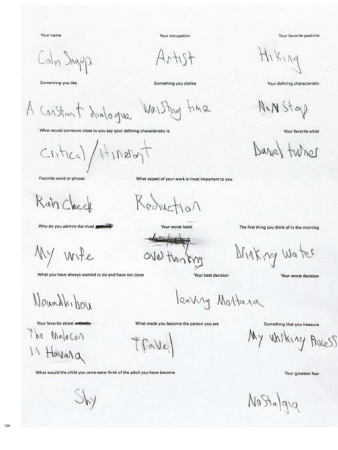 Your name Your occupation Your favorite pastime
Colin Artist Hiking
Something you like Something you dislike Your defining characteristic
A constant dialogue Wasting time Non Stop
What would someone close to you say your defining characteristic is Your favorite artist
Critical/Itinerant Daniel turner
Favorite word or phrase What aspect of your work is most important to you
Rain Check Reduction
Who do you admire the most Your worst habit The first thing you think of in the morning
My wife overthinking Drinking Water
What you have always wanted to do and have not done Your best decision Your worst decision
Nouadhibou leaving Montana
Your favorite street What made you become the person you are Something that you treasure
The Malecon Travel My Walking Process
in Havana
What would the child you once were think of the adult you have become Your greatest fear
Shy Nostalgia